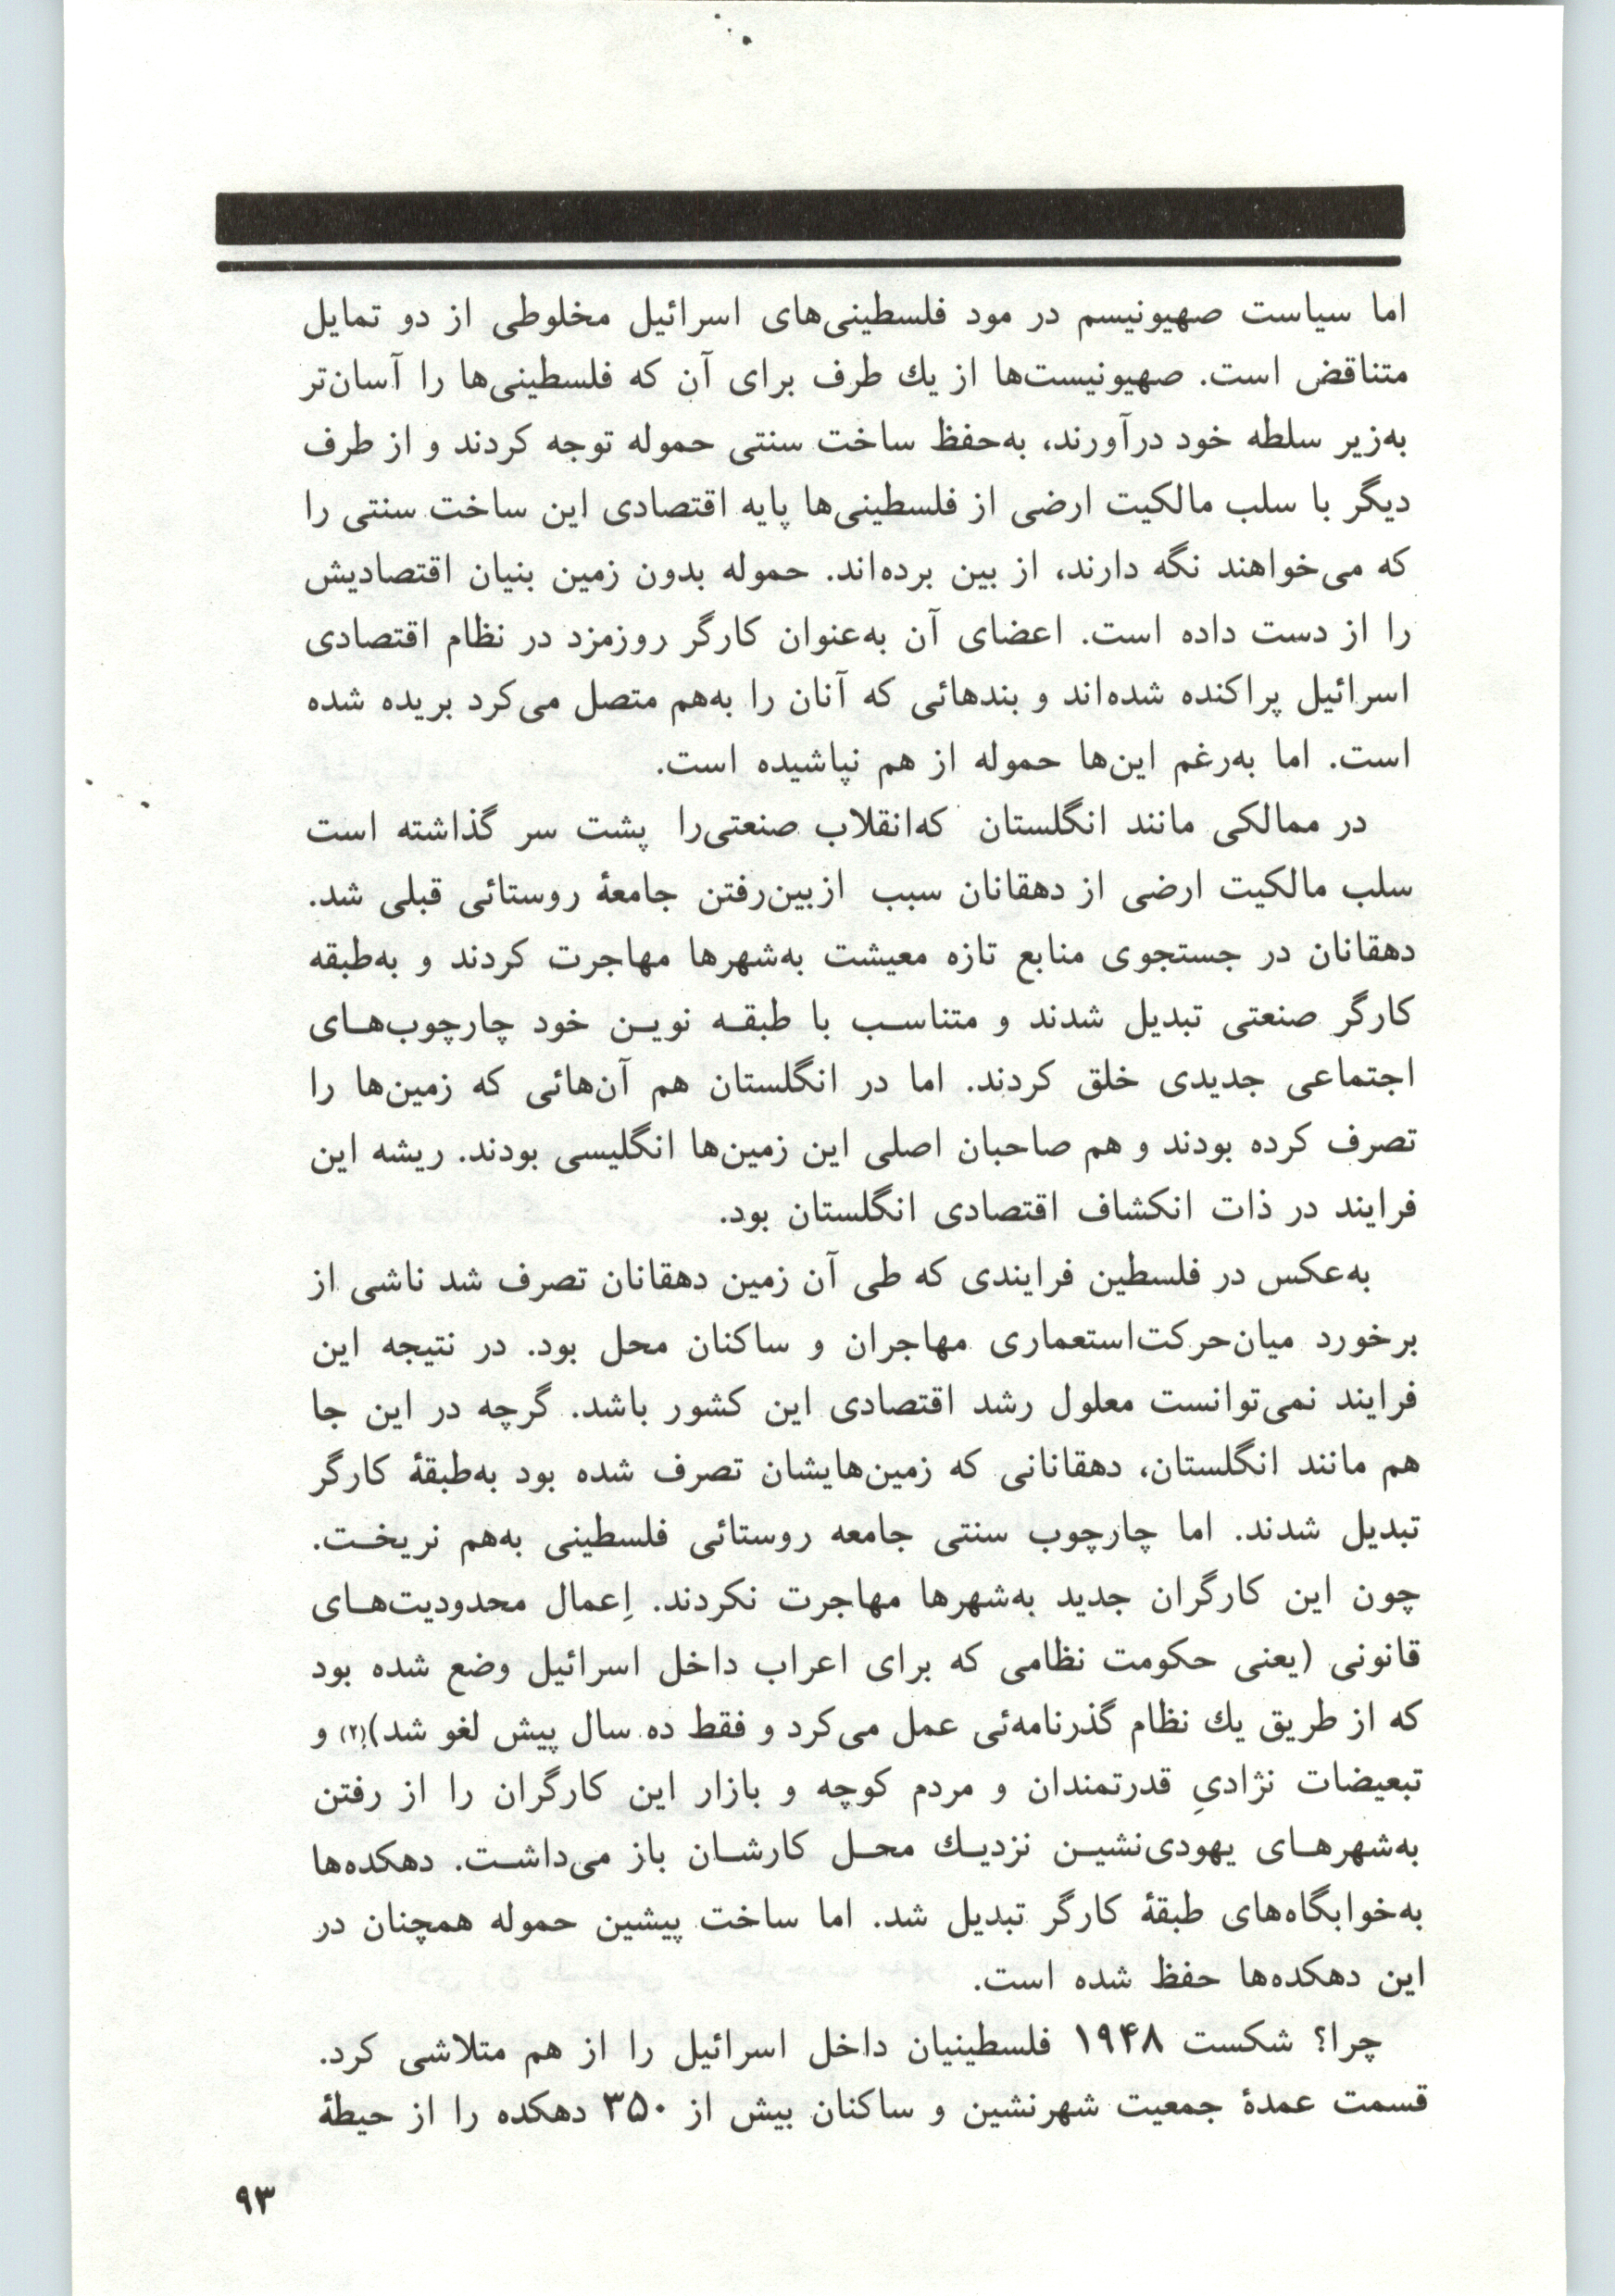 اما سیاست صهیونیسم در مود فلسطینی‌های اسرائیل مخلوطی از دو تمایل
متناقض است. صهیونیست‌ها از یك طرف برای آن که فلسطینی‌ها را آسان‌تر
به‌زیر سلطه خود درآورند، به‌حفظ ساخت سنتی حموله توجه کردند و از طرف
دیگر با سلب مالکیت ارضی از فلسطینی‌ها پایه اقتصادی این ساخت سنتی را
که می‌خواهند نگه دارند، از بین برده‌اند. حموله بدون زمین بنیان اقتصادیش
را از دست داده است. اعضای آن به‌عنوان کارگر روزمزد در نظام اقتصادی
اسرائیل پراکنده شده‌اند و بندهائی که آنان را به‌هم متصل می‌کرد بریده شده
است. اما به‌رغم این‌ها حموله از هم نپاشیده است.
در ممالکی مانند انگلستان که‌انقلاب صنعتی‌را پشت سر گذاشته است
سلب مالکیت ارضی از دهقانان سبب ازبین‌رفتن جامعهٔ روستائی قبلی شد.
دهقانان در جستجوی منابع تازه معیشت به‌شهرها مهاجرت کردند و به‌طبقه
کارگر صنعتی تبدیل شدند و متناسب با طبقه نوین خود چارچوب‌های
اجتماعی جدیدی خلق کردند. اما در انگلستان هم آن‌هائی که زمین‌ها را
تصرف کرده بودند و هم صاحبان اصلی این زمین‌ها انگلیسی بودند. ریشه این
فرایند در ذات انکشاف اقتصادی انگلستان بود.
به‌عکس در فلسطین فرایندی که طی آن زمین دهقانان تصرف شد ناشی از
برخورد میان‌حرکت‌استعماری مهاجران و ساکنان محل بود. در نتیجه این
فرایند نمی‌توانست معلول رشد اقتصادی این کشور باشد. گرچه در این جا
هم مانند انگلستان، دهقانانی که زمین‌هایشان تصرف شده بود به‌طبقهٔ کارگر
تبدیل شدند. اما چارچوب سنتی جامعه روستائی فلسطینی به‌هم نریخت.
چون این کارگران جدید به‌شهرها مهاجرت نکردند. اِعمال محدودیت‌های
قانونی (یعنی حکومت نظامی که برای اعراب داخل اسرائیل وضع شده بود
که از طریق یك نظام گذرنامه‌ئی عمل می‌کرد و فقط ده سال پیش لغو شد)(۲) و
تبعیضات نژادیِ قدرتمندان و مردم کوچه و بازار این کارگران را از رفتن
به‌شهرهای یهودی‌نشین نزدیك محل کارشان باز می‌داشت. دهکده‌ها
به‌خوابگاه‌های طبقهٔ کارگر تبدیل شد. اما ساخت پیشین حموله همچنان در
این دهکده‌ها حفظ شده است.
چرا؟ شکست ۱۹۴۸ فلسطینیان داخل اسرائیل را از هم متلاشی کرد.
قسمت عمدهٔ جمعیت شهرنشین و ساکنان بیش از ۳۵۰ دهکده را از حیطهٔ
۹۳